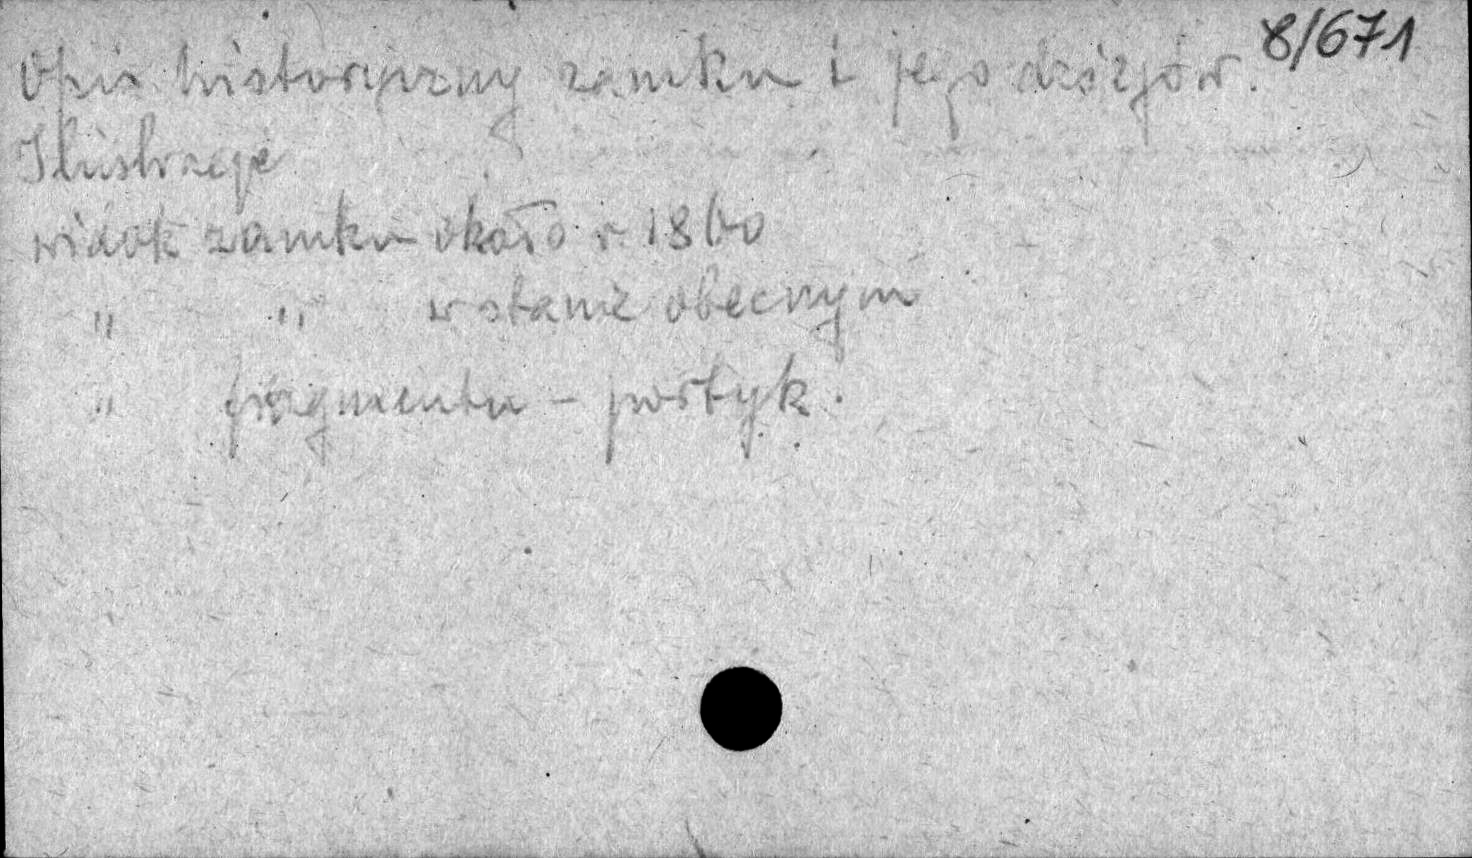 8/671
Opis historyczny zamku i jego dziejów.
Ilustracje
widok zamku około r. 1860
" " w stanie obecnym
" fragmentu – portyk.